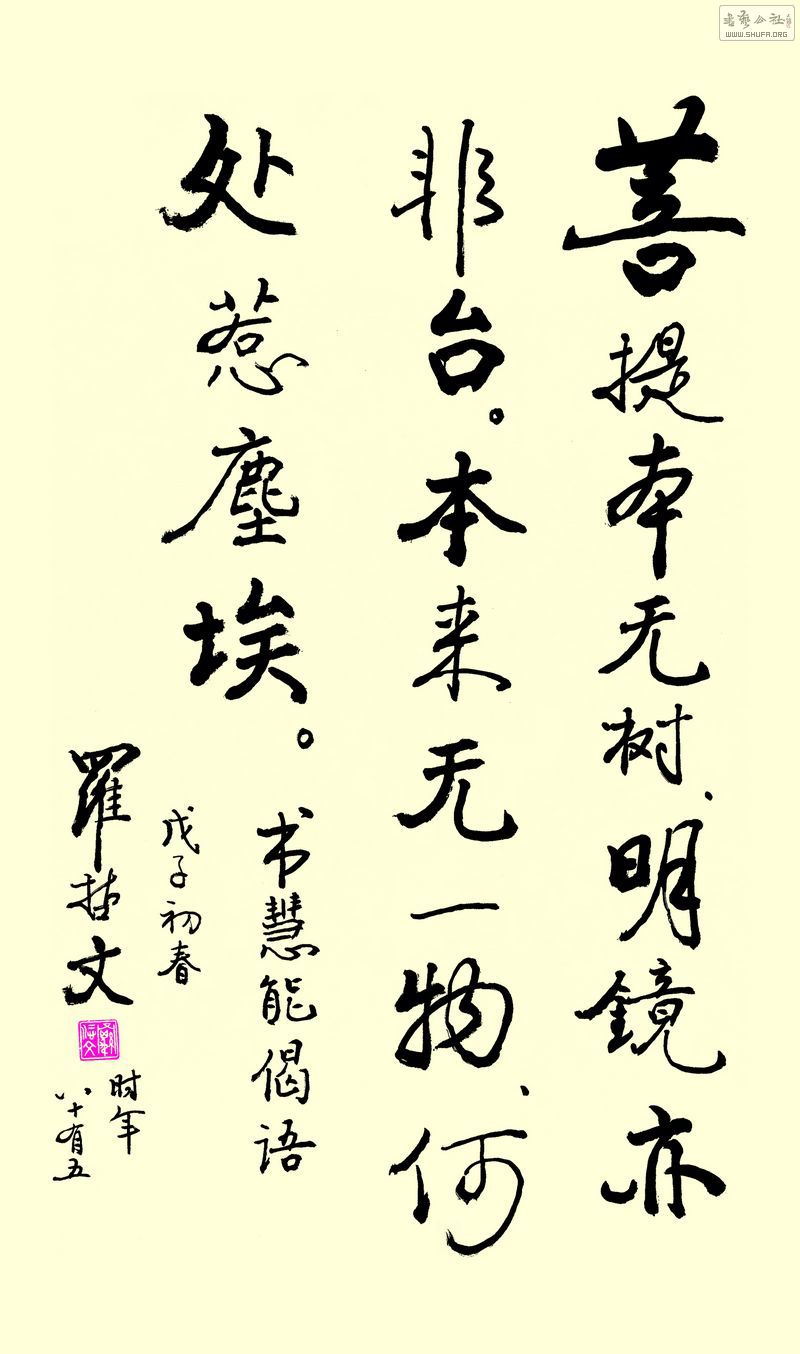 菩提本无树、明鏡亦
非台。本来无一物、何
处惹塵埃。
书慧能偈语
戊子初春
羅哲文
时年
八十有五
书艺公社
WWW.SHUFA.ORG